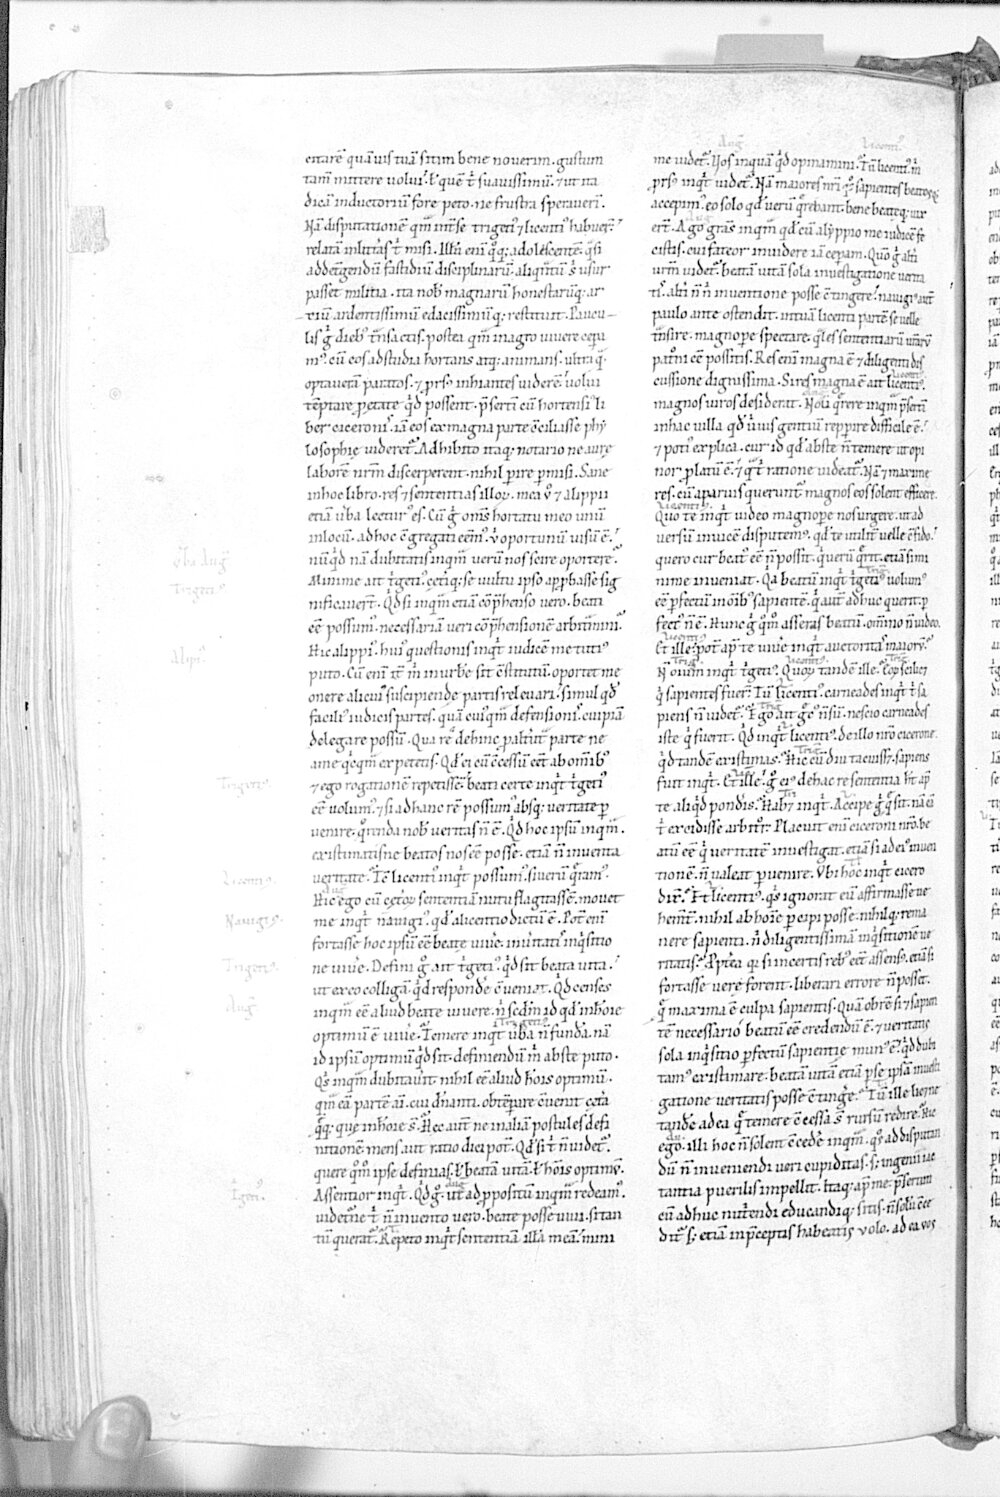 citare quā uis tuā sitim bene nouerim. gustum
tam̄ mittere uolui. ł quē t̄ suauissimū. ⁊ ut ita
dicā inductoriū fore peto. ne frustra sperauerī.
Nā disputationē q̄m int̄ se trigeti⁹ ⁊ licenti⁹ habuer̄.
relatā in litt̄as t̄ misi. Illū enī q̄q; adolescentē. q̄si
ad det̄gendū fastidiū disciplinarū. aliq̄ntū s̄ usur
passet militia. ita nob̄ magnarū honestarūq; ar
tiū ardentissimū edacissimūq; restituit. Paucu
lis ḡ dieb⁹ t̄nsactis. postea q̄m in agro uiuere cepi
m⁹. cū eos ad studia hortans atq; animans. ultra q̄
optauerā paratos. ⁊ p̄rs⁹ inhiantes uiderē. uolui
tēptare p̄ etate q̄d possent. p̄sertī cū hortensi⁹ li
ber ciceronī iā eos ex magna parte c̄ciliasse phy
losophie uideret̄. Adhibito itaq; notario ne aure
laborē nrm̄ discerperent. nihil p̄ire p̄misi. Sane
in hoc libro. res ⁊ sententias illoꝝ. mea ū ⁊ alippii
etiā ūba lectur⁹ es. Cū ḡ om̄s hortatu meo unū
in locū. ad hoc c̄gregati eēm⁹. ū oportunū uisū ē.
Ebi Aug̃
nūq̄d nā dubitatis inq̄m uerū nos scire oportere.
Trigeti⁹
Minime ait t̄geti⁹. ceq̄; se uultu ipso app̄basse sig
nificauer̄t. Q̄d si inq̄m etiā cōp̄henso uero. beati
eē possum⁹. necessariā ueri cōp̄hensionē arbit̄mini.
Alipi⁹.
Hic alippi⁹. hui⁹ questionis inq̄t iudicē me tuti⁹
puto. Cū enī it̄ m̄ in urbē sit c̄stitutū. oportet me
onere alicui⁹ suscipiende partis releuari. simul q̄d
facili⁹ iudicis partes. quā cuiq̄m defensionē. cuipiā
delegare possū. Qua rē dehinc p̄ altūt⁹ parte ne
a me q̄cq̄m expetetis. Q̄d ei cū c̄cessū eēt ab om̄ib⁹
Trigeti⁹.
⁊ ego rogationē repetissē. beati certe inq̄t t̄geti⁹
eē uolum⁹. ⁊ si ad hanc rē possum⁹ absq; ueritate p̄
uenire. q̄renda nob̄ ueritas n̄ ē. Q̄d hoc ipsū inq̄m.
existimatisne beatos nos eē posse. etiā n̄ inuenta
Licenti⁹.
ueritate. Tē licenti⁹ inq̄t possum⁹. si uerū q̄ram⁹.
Aug̃
Hic ego cū cet̄oꝝ sententiā nutu flagitassē. mouet
Nauigi⁹.
me inq̄t nauigi⁹. q̄d a licentio dictū ē. Pot̄ enī
fortasse hoc ipsū eē beate uiue. in ūitati⁹ inq̄sitio
Trigeti⁹.
ne uiue. Defini ḡ ait t̄geti⁹. q̄d sit beata uita.
ut ex eo colligā. q̄d respondē c̄ueniat. Q̄d censes
Aug̃
inq̄m eē aliud beate uiuere. n̄ scd̄m id q̄d in hoie
Trigeti⁹
optimū ē uiue. Temere inq̄t ūba n̄ fundā. nā
id ipsū optimū q̄d sit. definiendū m̄ abs te puto.
Q̄s inq̄m dubitauit. nihil eē aliud hois optimū.
q̄m eā partē ai. cui dn̄anti. obtēpare c̄uenit cet̄a
q̄q; que in hoie s̄. Hec aut̄ ne in aliā postules defi
nitionē mens aut ratio dici pot̄. Q̄d si t̄ n̄ uidet̄.
quere q̄m̄ ipse definias. ł beatā uitā. ł hois optimū.
T̄geti⁹.
Assentior inq̄t. Q̄d ḡ. ut ad p̄positū inq̄m redeam⁹.
Aug̃
uidet̄ne t̄ n̄ inuento uero. beate posse uiui. si tan
tū querat̄. Repeto inq̄t sententiā illā meā. mini
Aug̃ Licenti⁹
me uidet̄. Uos inquā q̄d opinamini. Tū licenti⁹. m̄
prs⁹ inq̄t uidet̄. Nā maiores nr̄i q̄s sapientes beatosq;
accepim⁹. eo solo q̄d uerū q̄rebant. bene beateq; uix
Aug
er̄t. Ago grās inq̄m q̄d cū alyppio me iudicē fe
cistis. cui fateor inuidere iā ceperam. Quō ḡ alt̄i
ur̄m uidet̄. beatā uitā sola inuestigatione uerita
tis. alt̄i n̄ n̄ inuentione posse c̄tingere. nauigi⁹ aut̄
paulo ante ostendit. in tuā licenti partē se uelle
t̄nsire. magnopē spectare. q̄les sententiarū ur̄arū
pat̄ni eē possitis. Res enī magna ē ⁊ diligenti dis
Licenti⁹
cussione dignissima. Si res magna ē ait licenti⁹.
Aug̃
magnos uiros desiderat. Noli q̄rere inq̄m p̄sertī
in hac uilla q̄d ūuis gentiū repp̄ire difficile ē.
⁊ poti⁹ explica. cur id q̄d abs te n̄ temere ut opi
nor platū ē. ⁊ q̄ t̄ ratione uideat̄. Nā ⁊ maxime
res. cū a paruis querunt̄. magnos eos solent efficere.
Licenti⁹
Quo te inq̄t uideo magnopē nos urgere. ut ad
uersū inuicē disputem⁹. q̄d te utilit̄ uelle c̄fido.
quero cur beat⁹ eē n̄ possit. q̄ uerū q̄rit. etiā si mi
Trig̃
nime inueniat. Q̄a beatū inq̄t t̄geti⁹ uolum⁹
eē p̄fectū in oīb⁹ sapientē. q̄ aut̄ adhuc querit. p̄
fect⁹ n̄ ē. Hunc ḡ q̄m̄ asseras beatū. om̄ino n̄ uideo.
Licenti⁹
Et ille. pot̄ ap̄ te uiue inq̄t auctoritas maioꝝ.
Trig̃. Licenti⁹ Trig̃.
N̄ oīum inq̄t t̄geti⁹. Quoꝝ tandē ille. Eoꝝ scilicꝫ
q̄ sapientes fuer̄. Tū licenti⁹. carneades inq̄t t̄ sa
Trig̃
piens n̄ uidet̄. Ego ait ḡc⁹ n̄ sū. nescio carneades
iste q̄s fuerit. Q̄d inq̄t licenti⁹. de illo nr̄o cicerone.
Trig̃.
q̄d tandē existimas. Hic cū diu tacuiss̄. sapiens
fuit inq̄t. Et ille. ḡ ei⁹ de hac re sententia ht̄ ap̄
te aliq̄d pondis. Habꝫ inq̄t. Accipe ḡ q̄ sit. nā eā
t̄ excidisse arbitror. Placuit enī ciceroni nr̄o. be
atū eē q̄ ueritatē inuestigat. etiā si ad ei⁹ inuen
tionē. n̄ ualeat p̄uenire. Vbi hoc inq̄t cicero
dix̄. Et licenti⁹. q̄s ignorat eū affirmasse ue
hem̄t. nihil ab hoīe p̄cipi posse. nihilq; rema
nere sapienti. n̄ diligentissimā inq̄sitionē ue
ritatis. Ap̄tea qr̄ si incertis reb⁹ eēt assens⁹. etiā si
fortasse uere forent. liberari errore n̄ posset.
q̄ maxima ē culpa sapientis. Quā ob rē si ⁊ sapien
tē necessario beatū eē credendū ē. ⁊ ueritatis
sola inq̄sitio p̄fectū sapientie mun⁹ ē. q̄d dubi
tam⁹ existimare. beatā uitā etiā p̄ se ipsā inuesti
gatione ueritatis posse c̄tinge. Tū ille licꝫne
tandē ad ea q̄ temere c̄cessa s̄ rursū redire. Hic
ego. illi hoc n̄ solent c̄cedē inq̄m. q̄s ad disputan
dū n̄ inueniendi ueri cupiditas. sꝫ ingenii iac
tantia puerilis impellit. Itaq; ap̄ me. p̄sertim
cū adhuc nut̄endi educandiq; sitis. n̄ solū c̄ce
dit̄. sꝫ etiā in p̄ceptis habeatis uolo. ad ea uos